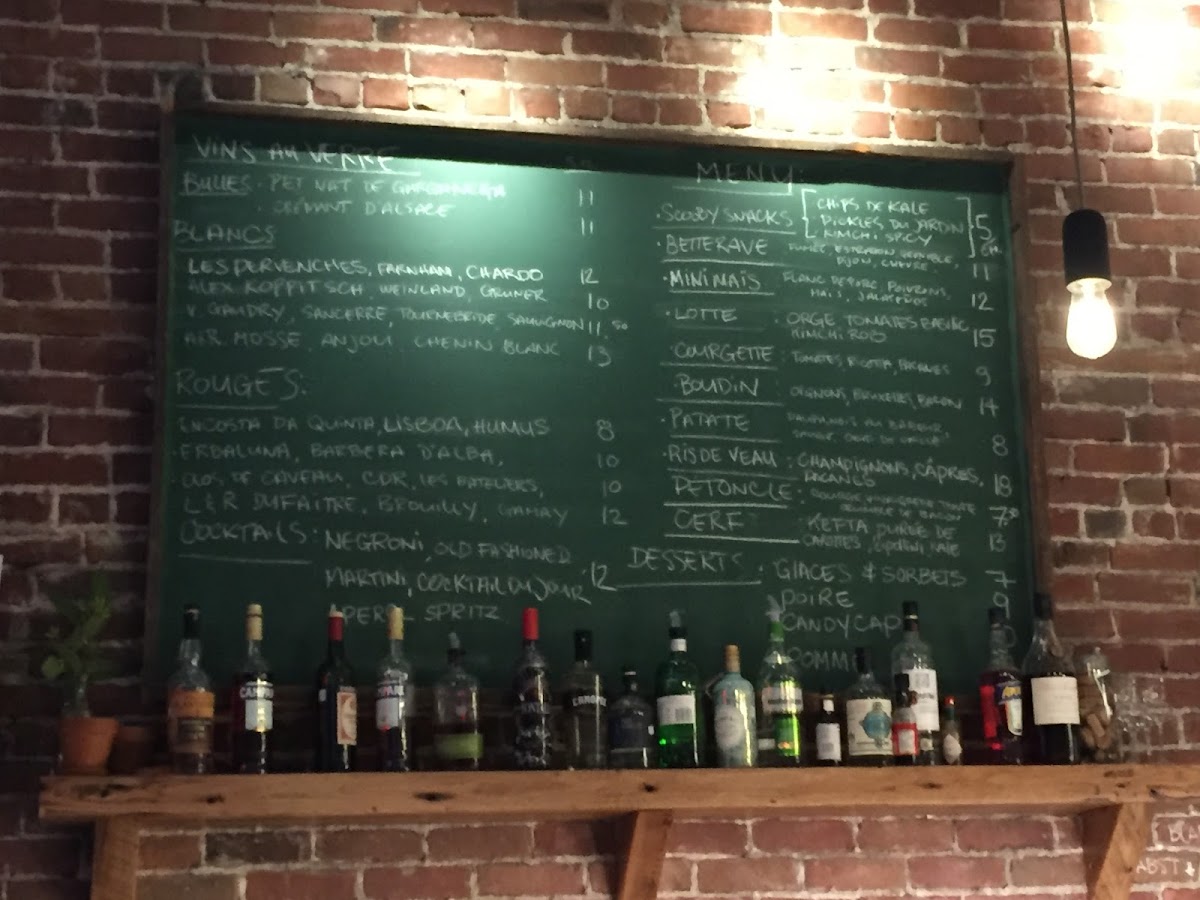 VINS AU VERRE
BULLES · PET NAT DE GARGANEGA 11
· CRÉMANT D'ALSACE 11
BLANCS
LES PERVENCHES, FARNHAM, CHARDO 12
ALEX KOPPITSCH, WEINLAND, GRUNER 10
V. GAUDRY, SANCERRE, TOURNEBRIDE, SAUVIGNON 11.50
MOSSE, ANJOU, CHENIN BLANC 13
ROUGES:
ENCOSTA DA QUINTA, LISBOA, HUMUS 8
· ERBALUNA, BARBERA D'ALBA, 10
CLOS DE CAVEAU, CDR, LES BATELIERS, 10
L & R DUFAITRE, BROUILLY, GAMAY 12
COCKTAILS: NEGRONI, OLD FASHIONED
MARTINI, COCKTAIL DU JOUR 12
APEROL SPRITZ
MENU:
· SCOOBY SNACKS [CHIPS DE KALE
PICKLES DU JARDIN
KIMCHI SPICY] 5
· BETTERAVE 11
· MINI MAÏS FLANC DE PORC, POIVRONS,
MAÏS, JALAPEÑOS 12
· LOTTE : ORGE, TOMATES, BASILIC
KIMCHI ROD 15
COURGETTE : TOMATES, RICOTTA, 9
BOUDIN : OIGNONS, BRUXELLES, BACON 14
· PATATE 8
· RIS DE VEAU : CHAMPIGNONS, CÂPRES,
PACANES 18
PETONCLE : 7.50
CERF : KEFTA, PURÉE DE
CAROTTES, KALE 13
DESSERTS · GLACES & SORBETS 7
POIRE 9
CANDY CAP
POMME
CAMPARI